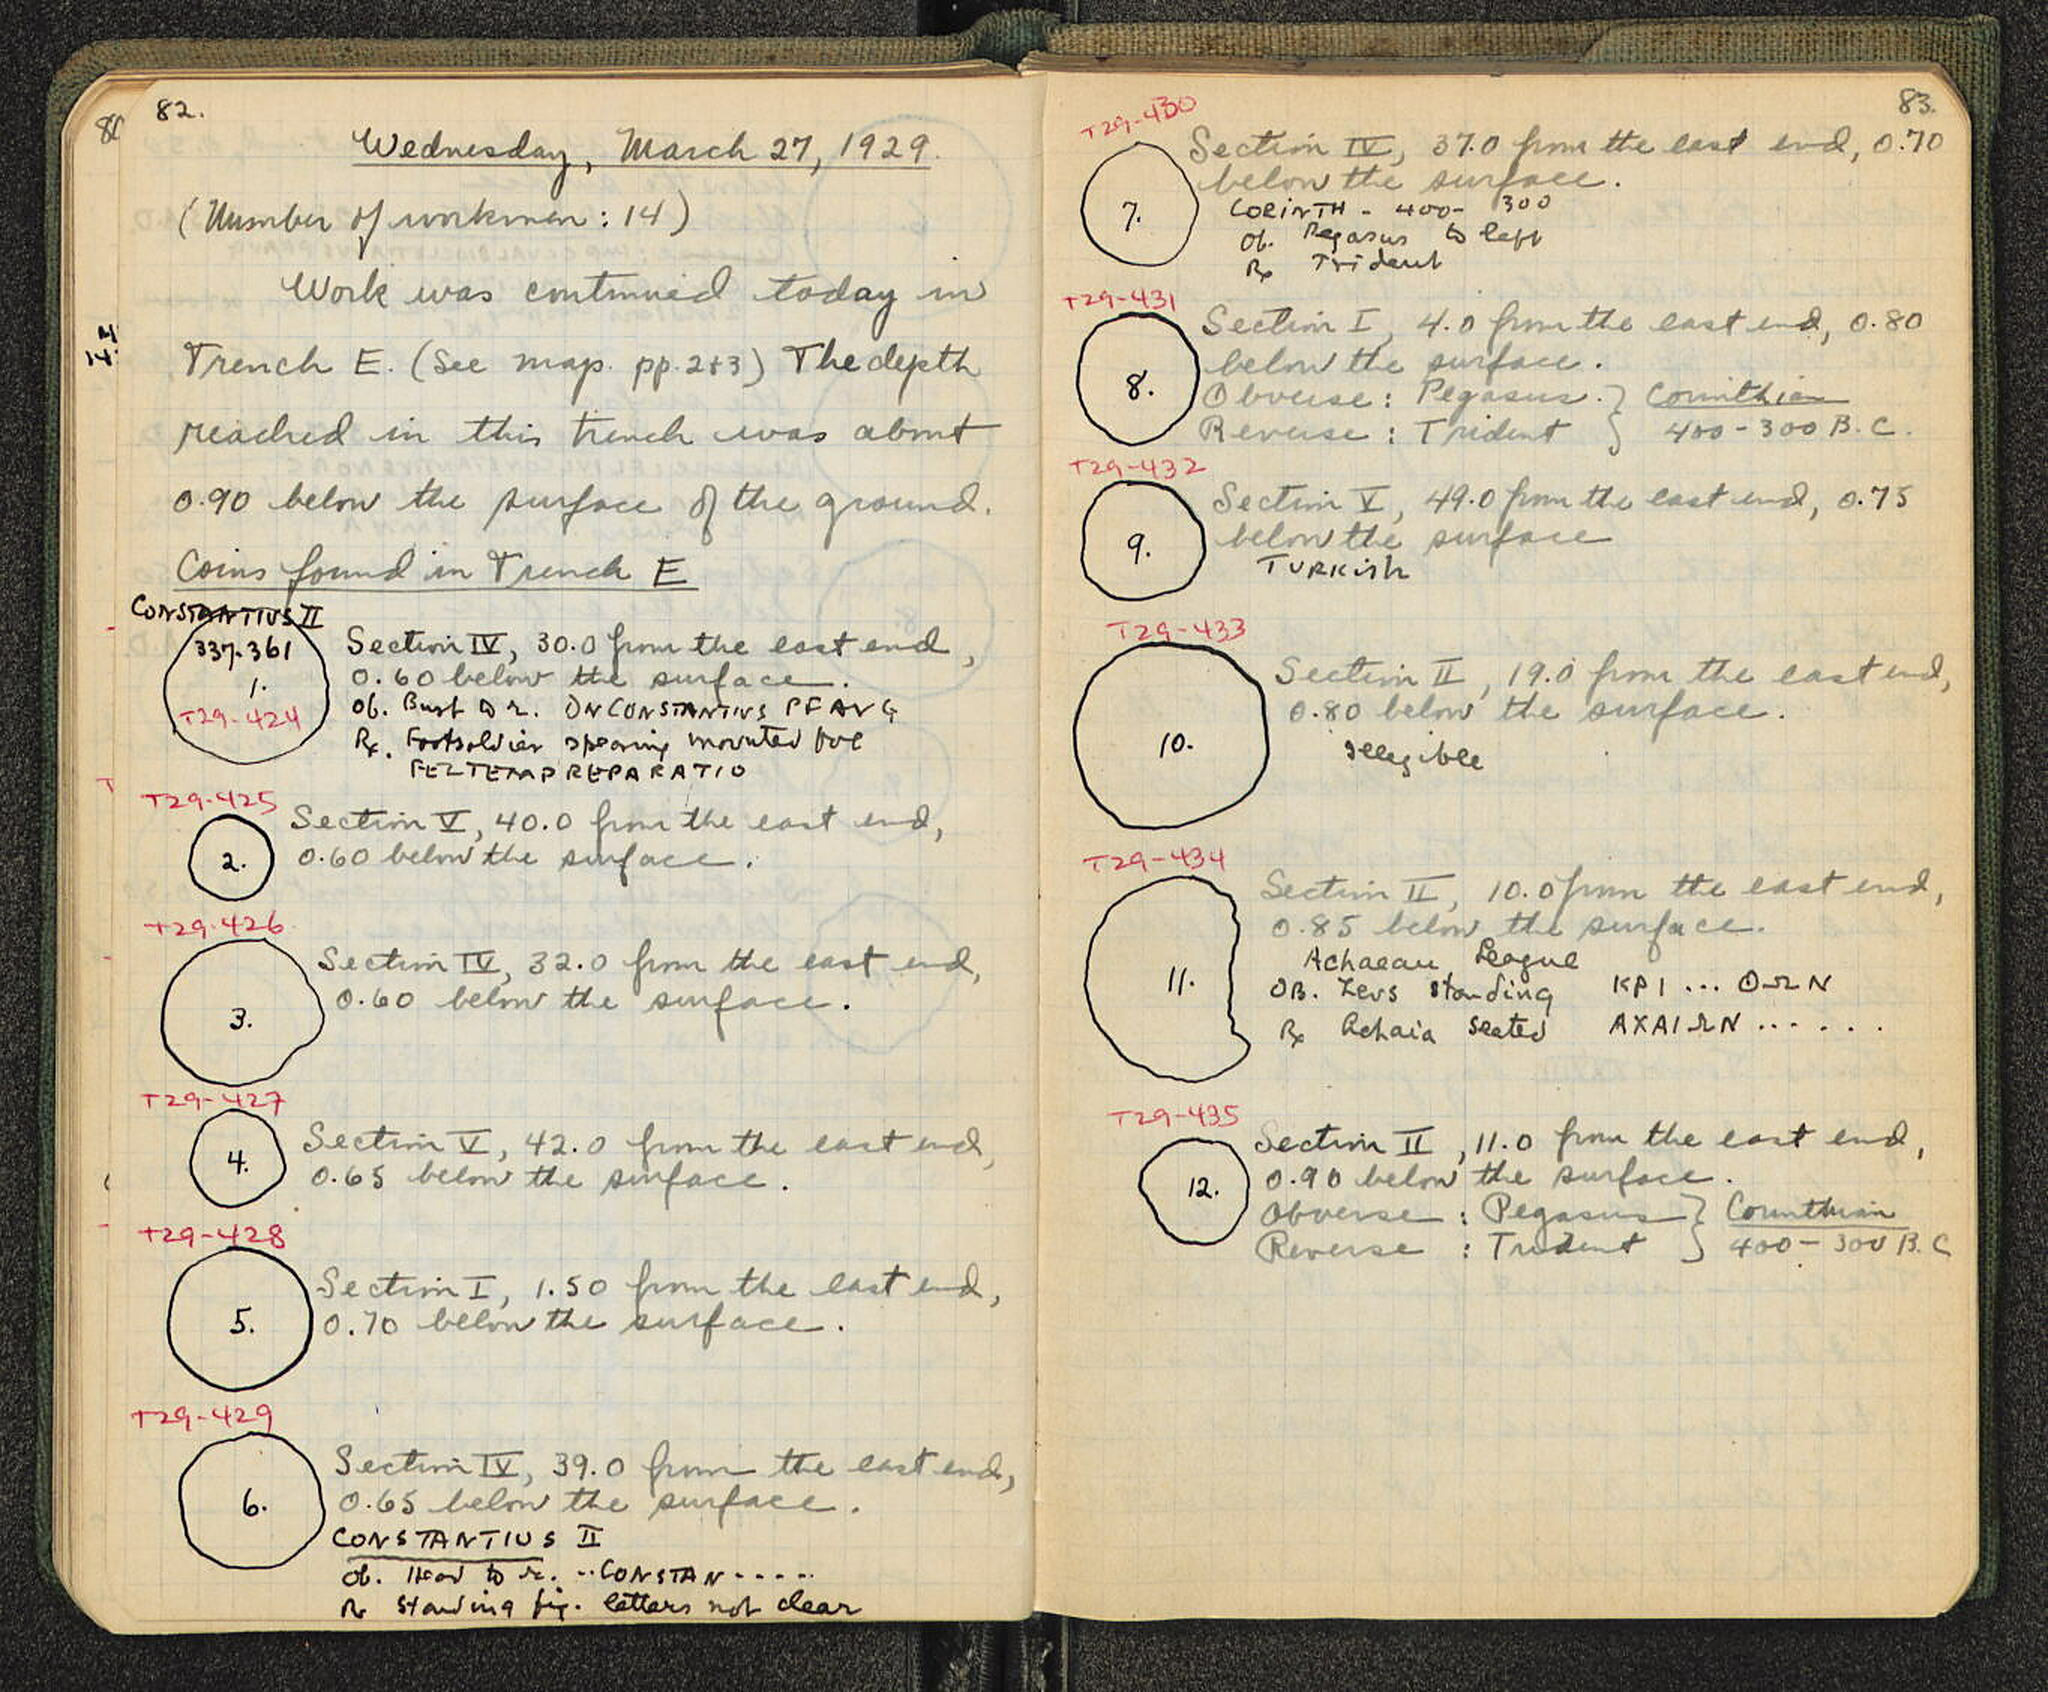 82.
Wednesday, March 27, 1929.
(Number of workmen: 14)
Work was continued today in
Trench E. (See map. pp. 2+3) The depth
reached in this trench was about
0.90 below the surface of the ground.
Coins found in Trench E
CONSTANTIUS II
337-361
1.
T29-424
Section IV, 30.0 from the east end,
0.60 below the surface.
Ob. Bust to r. DNCONSTANTIUS PF AVG
Rx. Footsoldier spearing mounted foe
FELTEMPREPARATIO
T29-425
2.
Section V, 40.0 from the east end,
0.60 below the surface.
T29-426
3.
Section IV, 32.0 from the east end,
0.60 below the surface.
T29-427
4.
Section V, 42.0 from the east end,
0.65 below the surface.
T29-428
5.
Section I, 1.50 from the east end,
0.70 below the surface.
T29-429
6.
Section IV, 39.0 from the east end,
0.65 below the surface.
CONSTANTIUS II
Ob. Head to r. ..CONSTAN.....
Rx Standing fig. letters not clear
83.
T29-430
7.
Section IV, 37.0 from the east end, 0.70
below the surface.
CORINTH - 400- 300
Ob. Pegasus to left
Rx Trident
T29-431
8.
Section I, 4.0 from the east end, 0.80
below the surface.
Obverse: Pegasus. } Corinthian
Reverse: Trident } 400-300 B.C.
T29-432
9.
Section V, 49.0 from the east end, 0.75
below the surface
TURKish
T29-433
10.
Section II, 19.0 from the east end,
0.80 below the surface.
illegible
T29-434
11.
Section II, 10.0 from the east end,
0.85 below the surface.
Achaean League
OB. Zeus Standing KPI ... OΩN
Rx Achaia Seated AXAIΩN ......
T29-435
12.
Section II, 11.0 from the east end,
0.90 below the surface.
Obverse : Pegasus } Corinthian
Reverse : Trident } 400-300 B.C